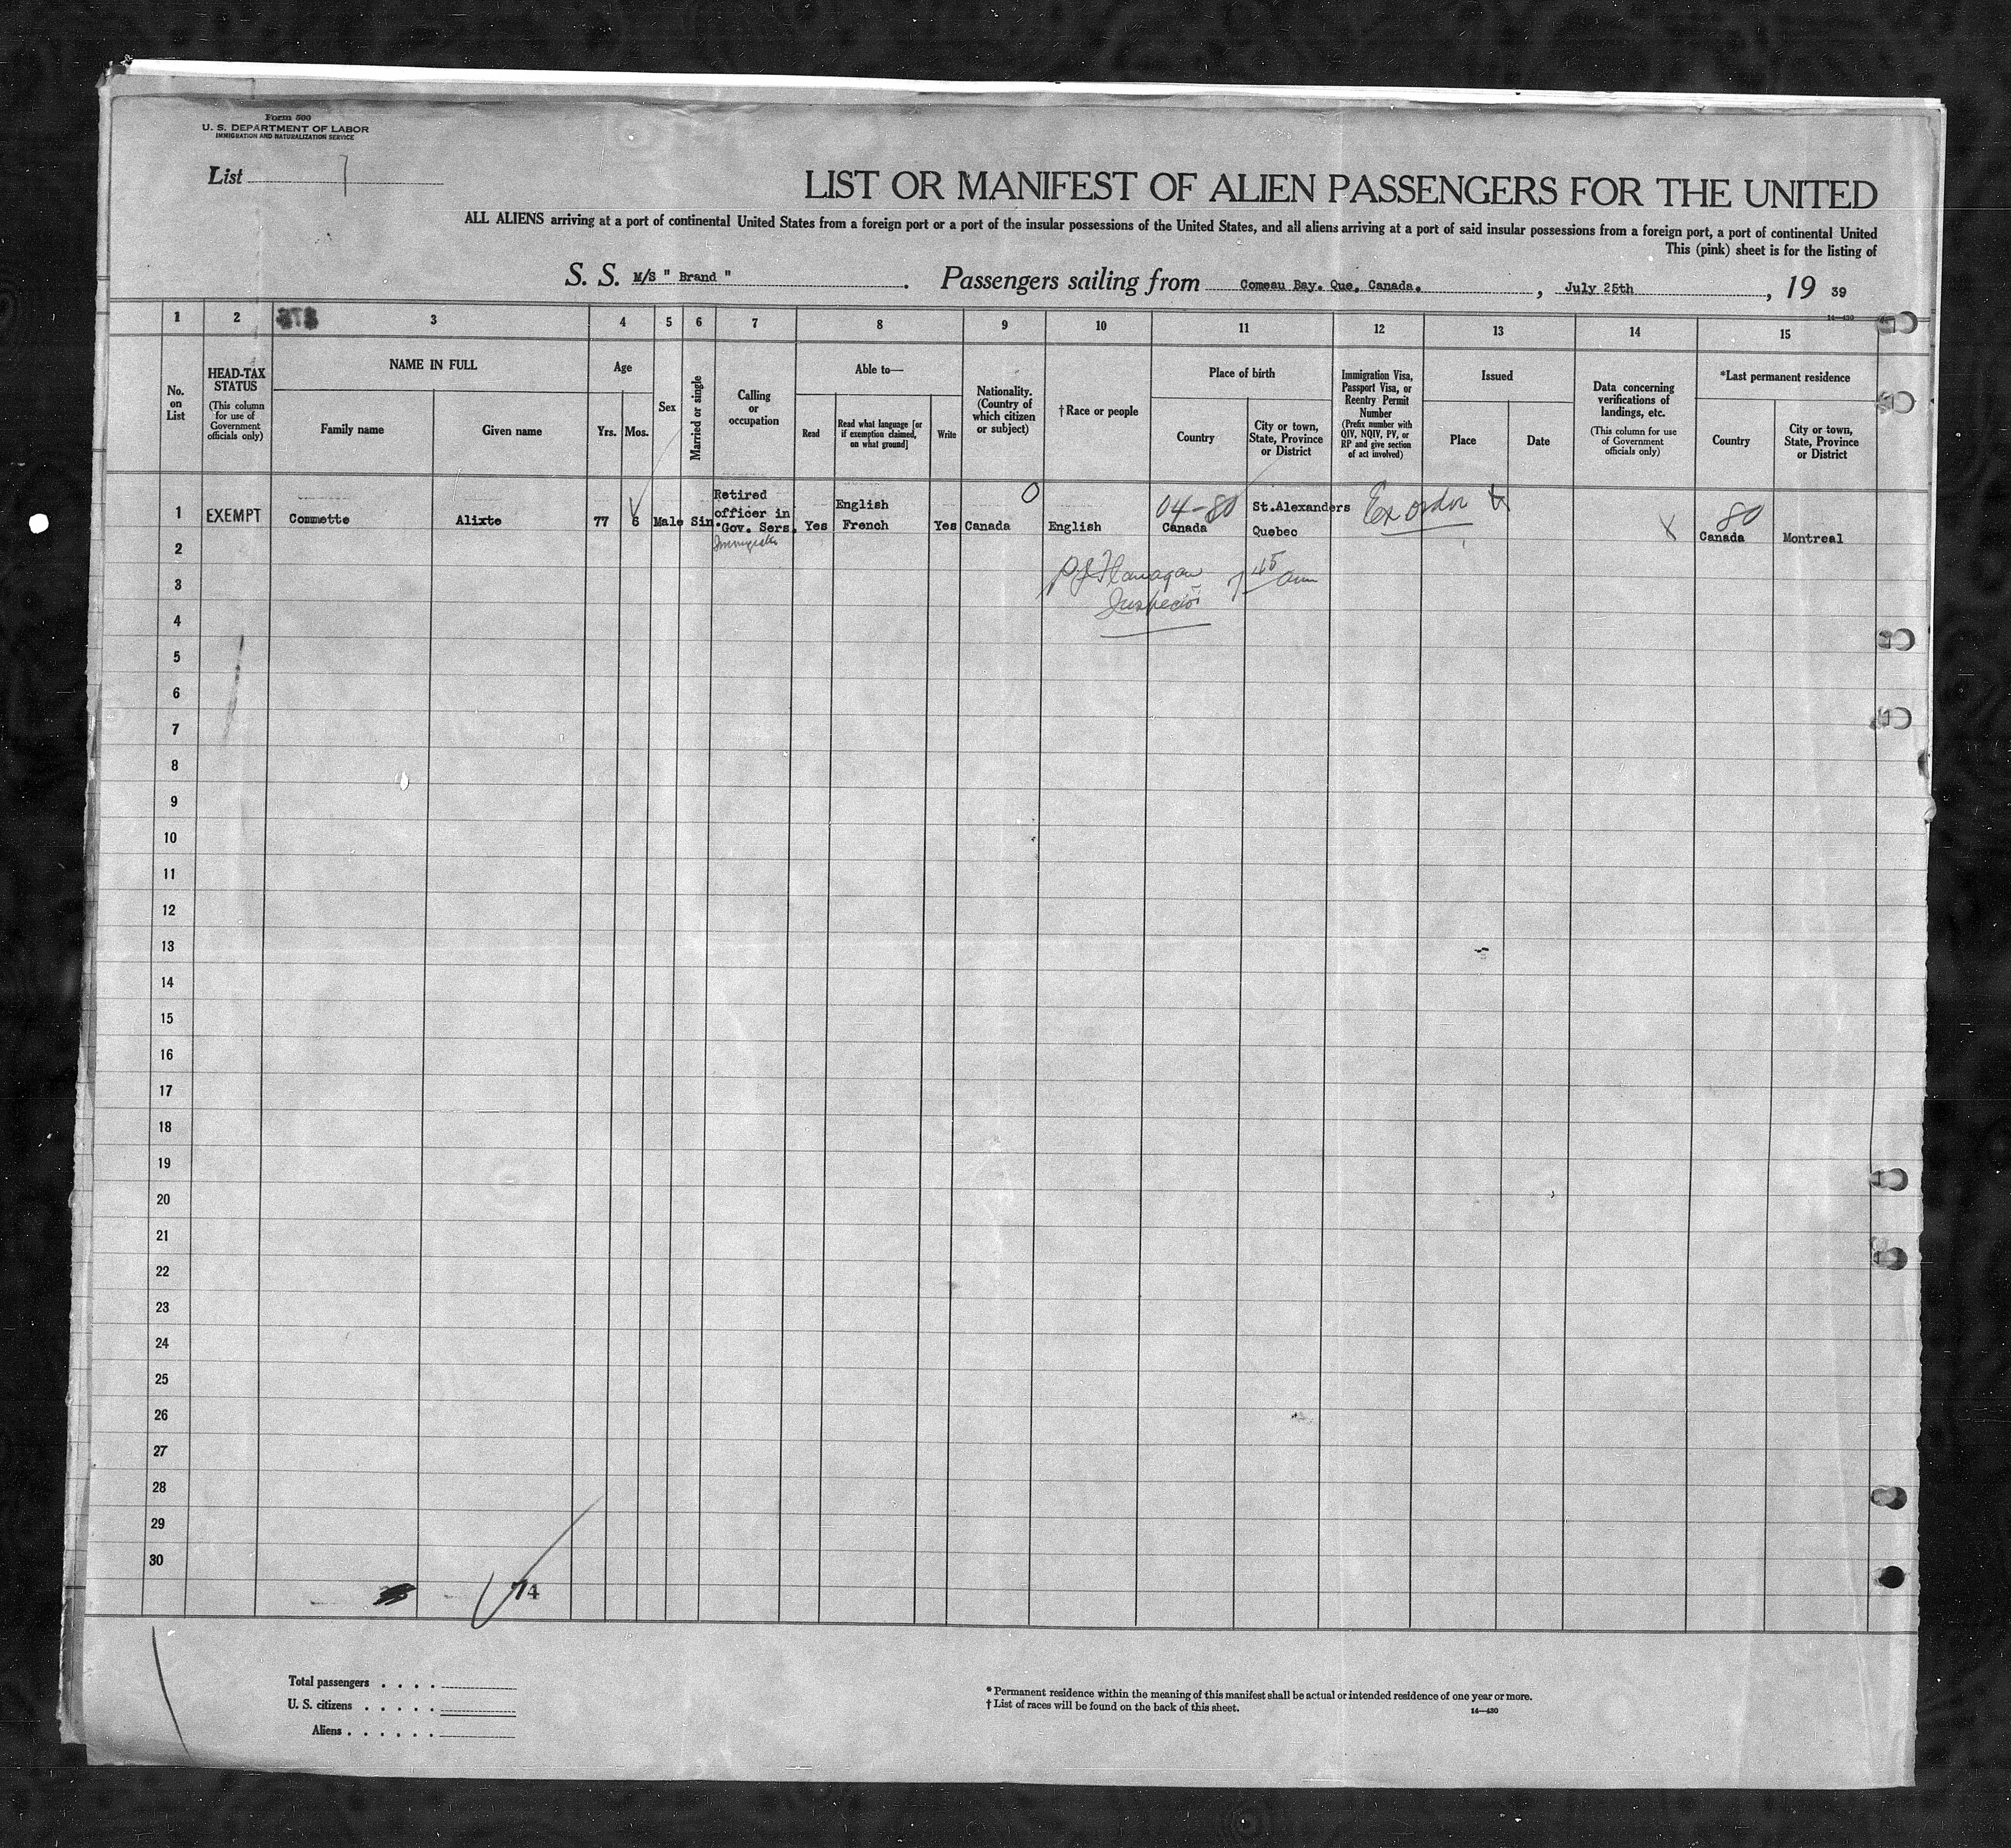 Form 500
U. S. DEPARTMENT OF LABOR
IMMIGRATION AND NATURALIZATION SERVICE
List
LIST OR MANIFEST OF ALIEN PASSENGERS FOR THE UNITED
ALL ALIENS arriving at a port of continental United States from a foreign port or a port of the insular possessions of the United States, and all aliens arriving at a port of said insular possessions from a foreign port, a port of continental United
This (pink) sheet is for the listing of
S. S. M/S " Brand " . Passengers sailing from Comeau Bay. Que. Canada. , July 25th , 19 39
14—430
1 2 3 4 5 6 7 8 9 10 11 12 13 14 15
No. on List
HEAD-TAX STATUS
(This column for use of Government officials only)
NAME IN FULL
Family name
Given name
Age
Yrs. Mos.
Sex
Married or single
Calling or occupation
Able to—
Read
Read what language [or if exemption claimed, on what ground]
Write
Nationality. (Country of which citizen or subject)
†Race or people
Place of birth
Country
City or town, State, Province or District
Immigration Visa, Passport Visa, or Reentry Permit Number
(Prefix number with QIV, NQIV, PV, or RP and give section of act involved)
Issued
Place
Date
Data concerning verifications of landings, etc.
(This column for use of Government officials only)
*Last permanent residence
Country
City or town, State, Province or District
1 EXEMPT Commette Alixte 77 6 Male Sin Retired officer in Gov. Sers. Yes English French Yes Canada English 04-80 Canada St.Alexanders Quebec Ex order 80 Canada Montreal
2
3 P J Flanagan 7 45 am
Inspector
4
5
6
7
8
9
10
11
12
13
14
15
16
17
18
19
20
21
22
23
24
25
26
27
28
29
30
74
Total passengers . . . .
U. S. citizens . . . . .
Aliens . . . . . .
* Permanent residence within the meaning of this manifest shall be actual or intended residence of one year or more.
† List of races will be found on the back of this sheet.
14—430